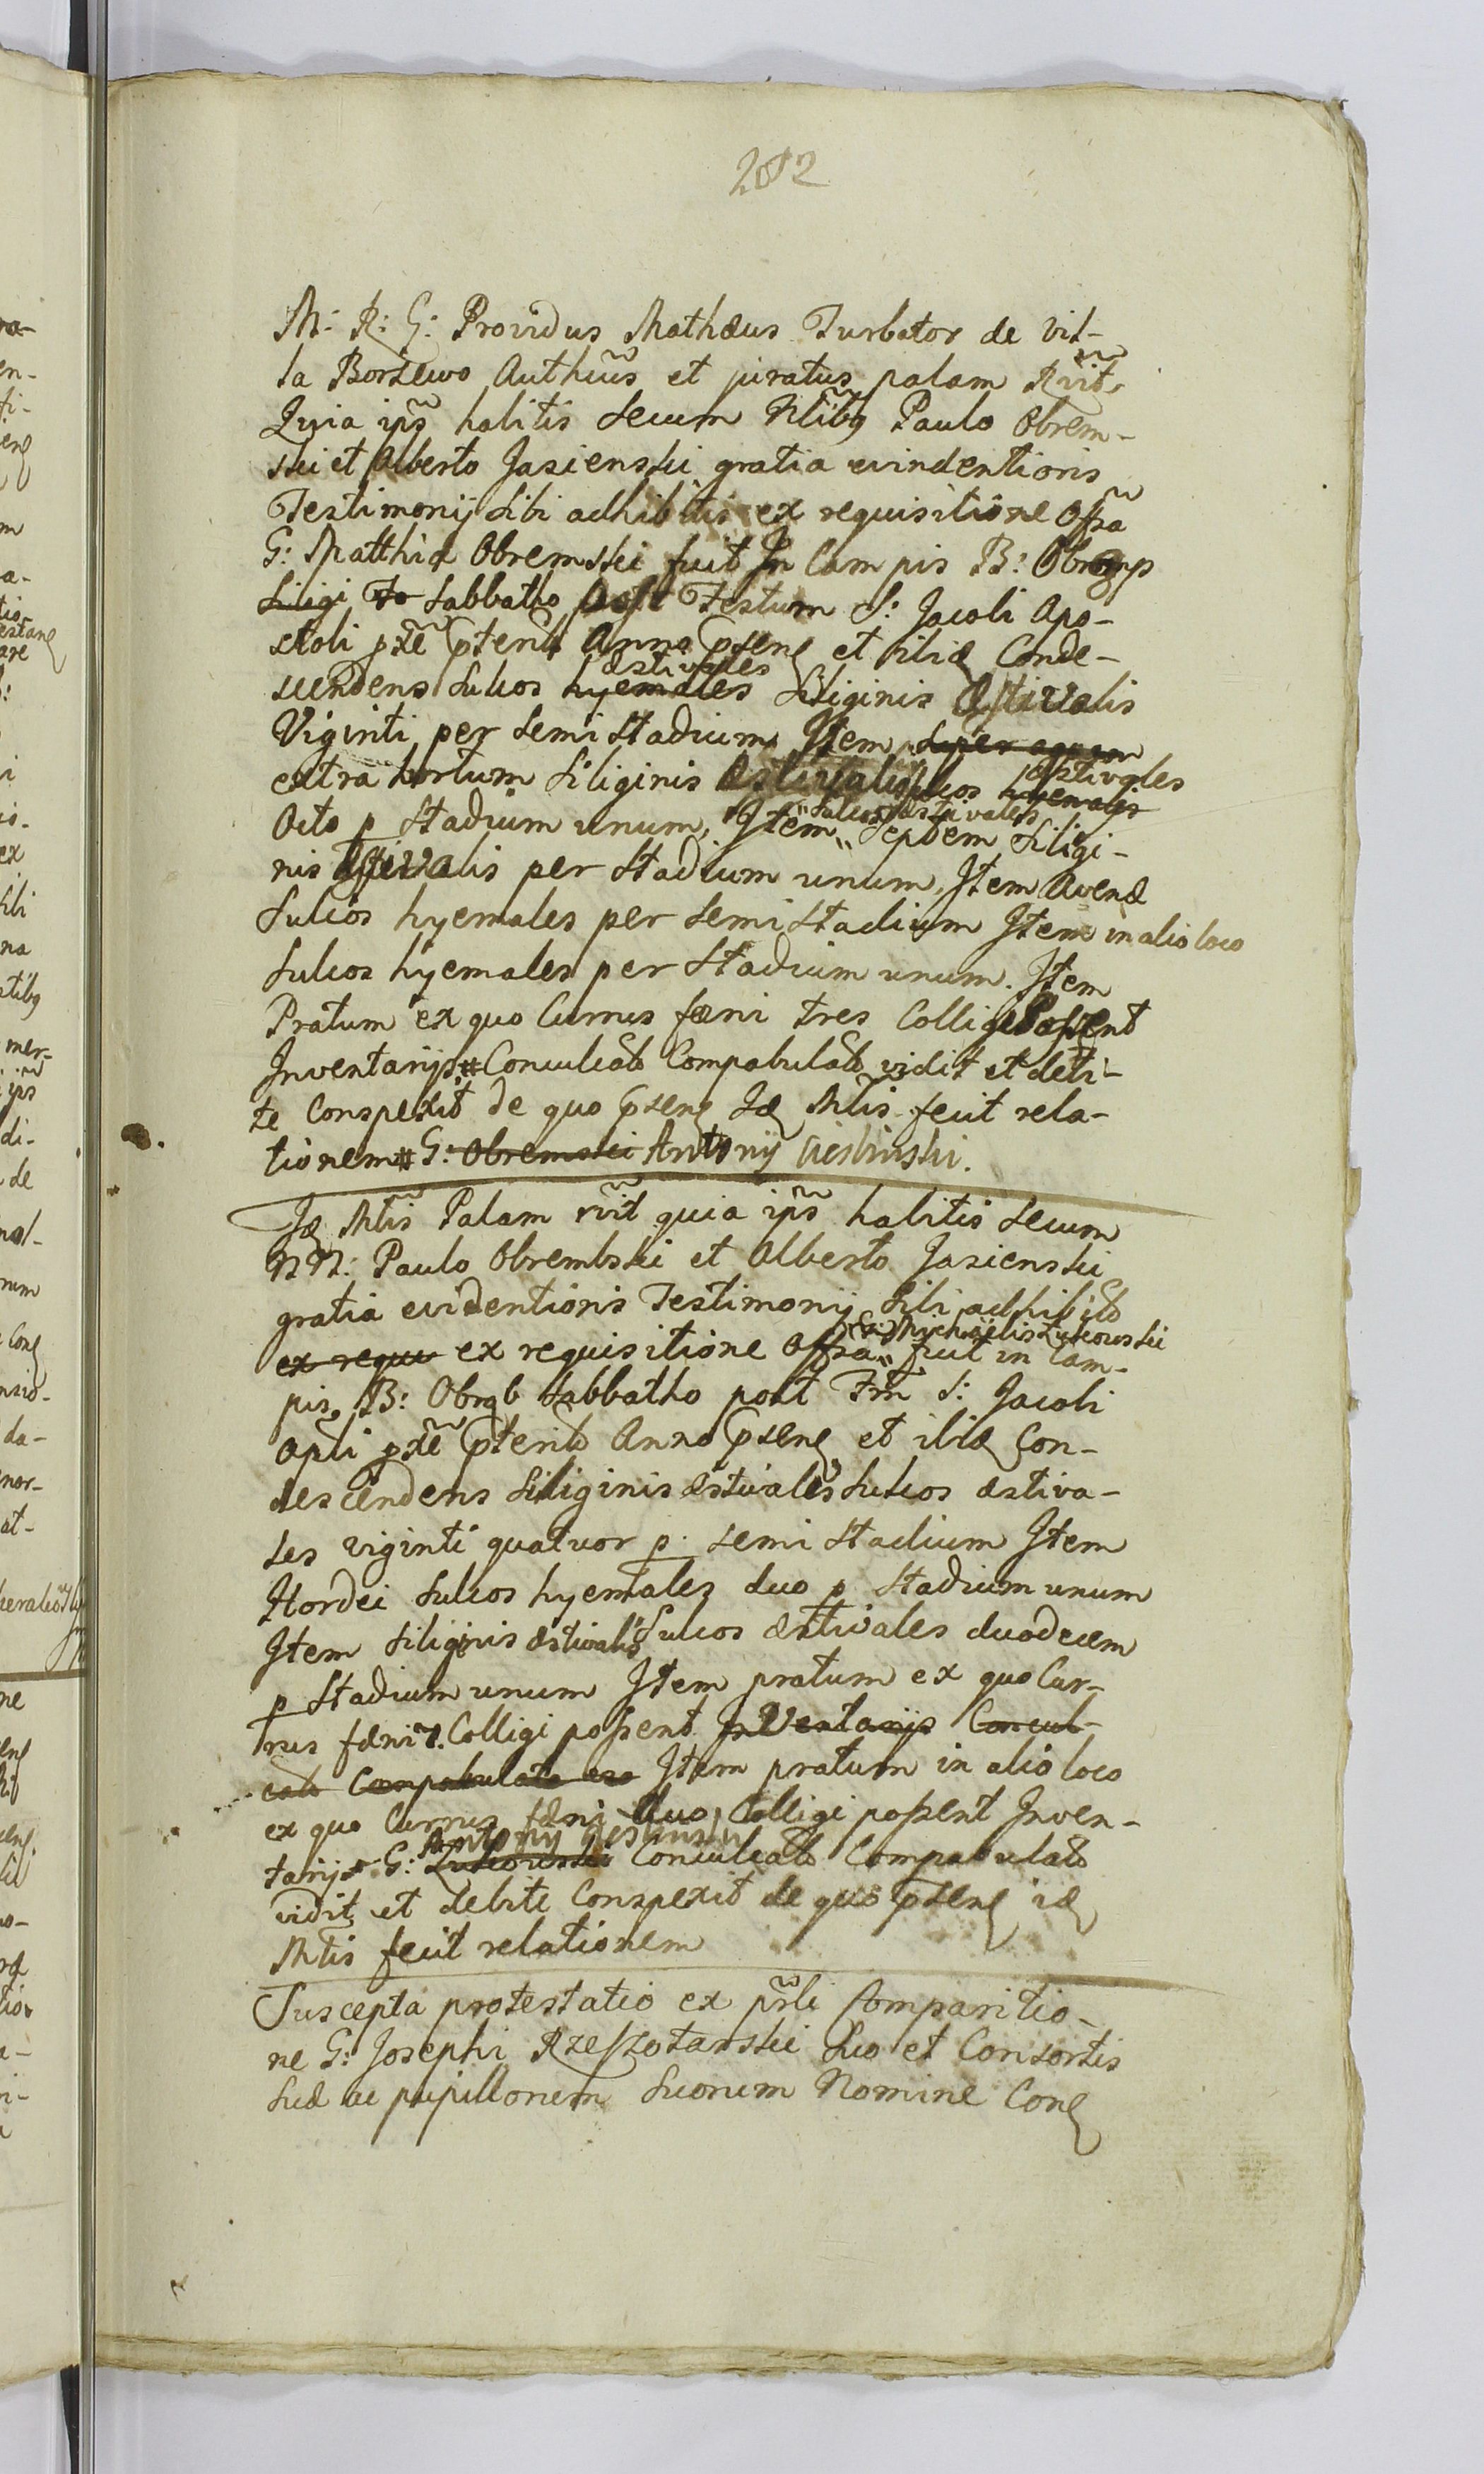 202
M: R: G: Providus Mathæus Turbator de Vil-
la Borzewo Authũs et juratus palam Rũit
Quia ips̃ habitis secum Nlĩbꝫ Paulo Obrem-
ski et Alberto Jasienski gratia evindentioris
Testimonij sibi adhibitis ex requisitione Offsã
G: Matthiæ Obremski fuit In Campis B: Obręmp
Siligi To Sabbatho post Festum S: Jacobi Apo-
stoli pxe præterito Anno psenę et ibidę Conde-
scendens sulcos hyemales æstivales Siliginis Æstivalis
Viginti per semi stadium Item super aquam
extra hortum siliginis Æstivalis sulcos hyemales æstivales
Octo p stadium unum, Item sulcos æstivales Septem Siligi-
nis Æstivalis per stadium unum, Item Avenæ
Sulcos hyemales per semi stadium Item in alio loco
Sulcos hyemales per stadium unum. Item
Pratum ex quo Currus fæni tres Colligi Possent
Inventarijs # Conculcatō Compabulatō vidit et debi-
te Conspexit de quo psenę Idę Mlis fecit rela-
tionem # G: Obremski Antonij Cieslinski.
Idę Mtis Palam rũit quia ips̃ habitis secum
NN: Paulo Obrembski et Alberto Jasienski
gratia evidentioris Testimonij sibi adhibitō
ex requi ex requisitione Offsa G: Michaelis Lukowski fuit in Cam-
pis B: Obręb Sabbatho post Fm̃ S: Jacobi
Apli pxẽ pteritō Anno psenę et ibidę Con-
descendens Siliginis æstivalis sulcos æstiva-
les viginti quatuor p. semi stadium Item
Hordei sulcos hyemales duo p stadium unum
Item siliginis æstivalis Sulcos æstivales duodecem
p stadium unum Item pratum ex quo Cur-
rus fæni 7. Colligi possent Inventarijs Concul-
catō Compabulatō Item pratum in alio loco
ex quo Currus fæni duo Colligi possent Inven-
tarijs G: Lukowski Antonij Cieslinski Conculcatō Compabulatō
vidit et debite Conspexit de quo psenę idę
Mtis fecit relationem
Suscepta protestatio ex psl̃i Comparitio-
ne G: Josephi Rzeszotarski Suo et Consortis
suæ ac pupillorum suorum Nomine Conę